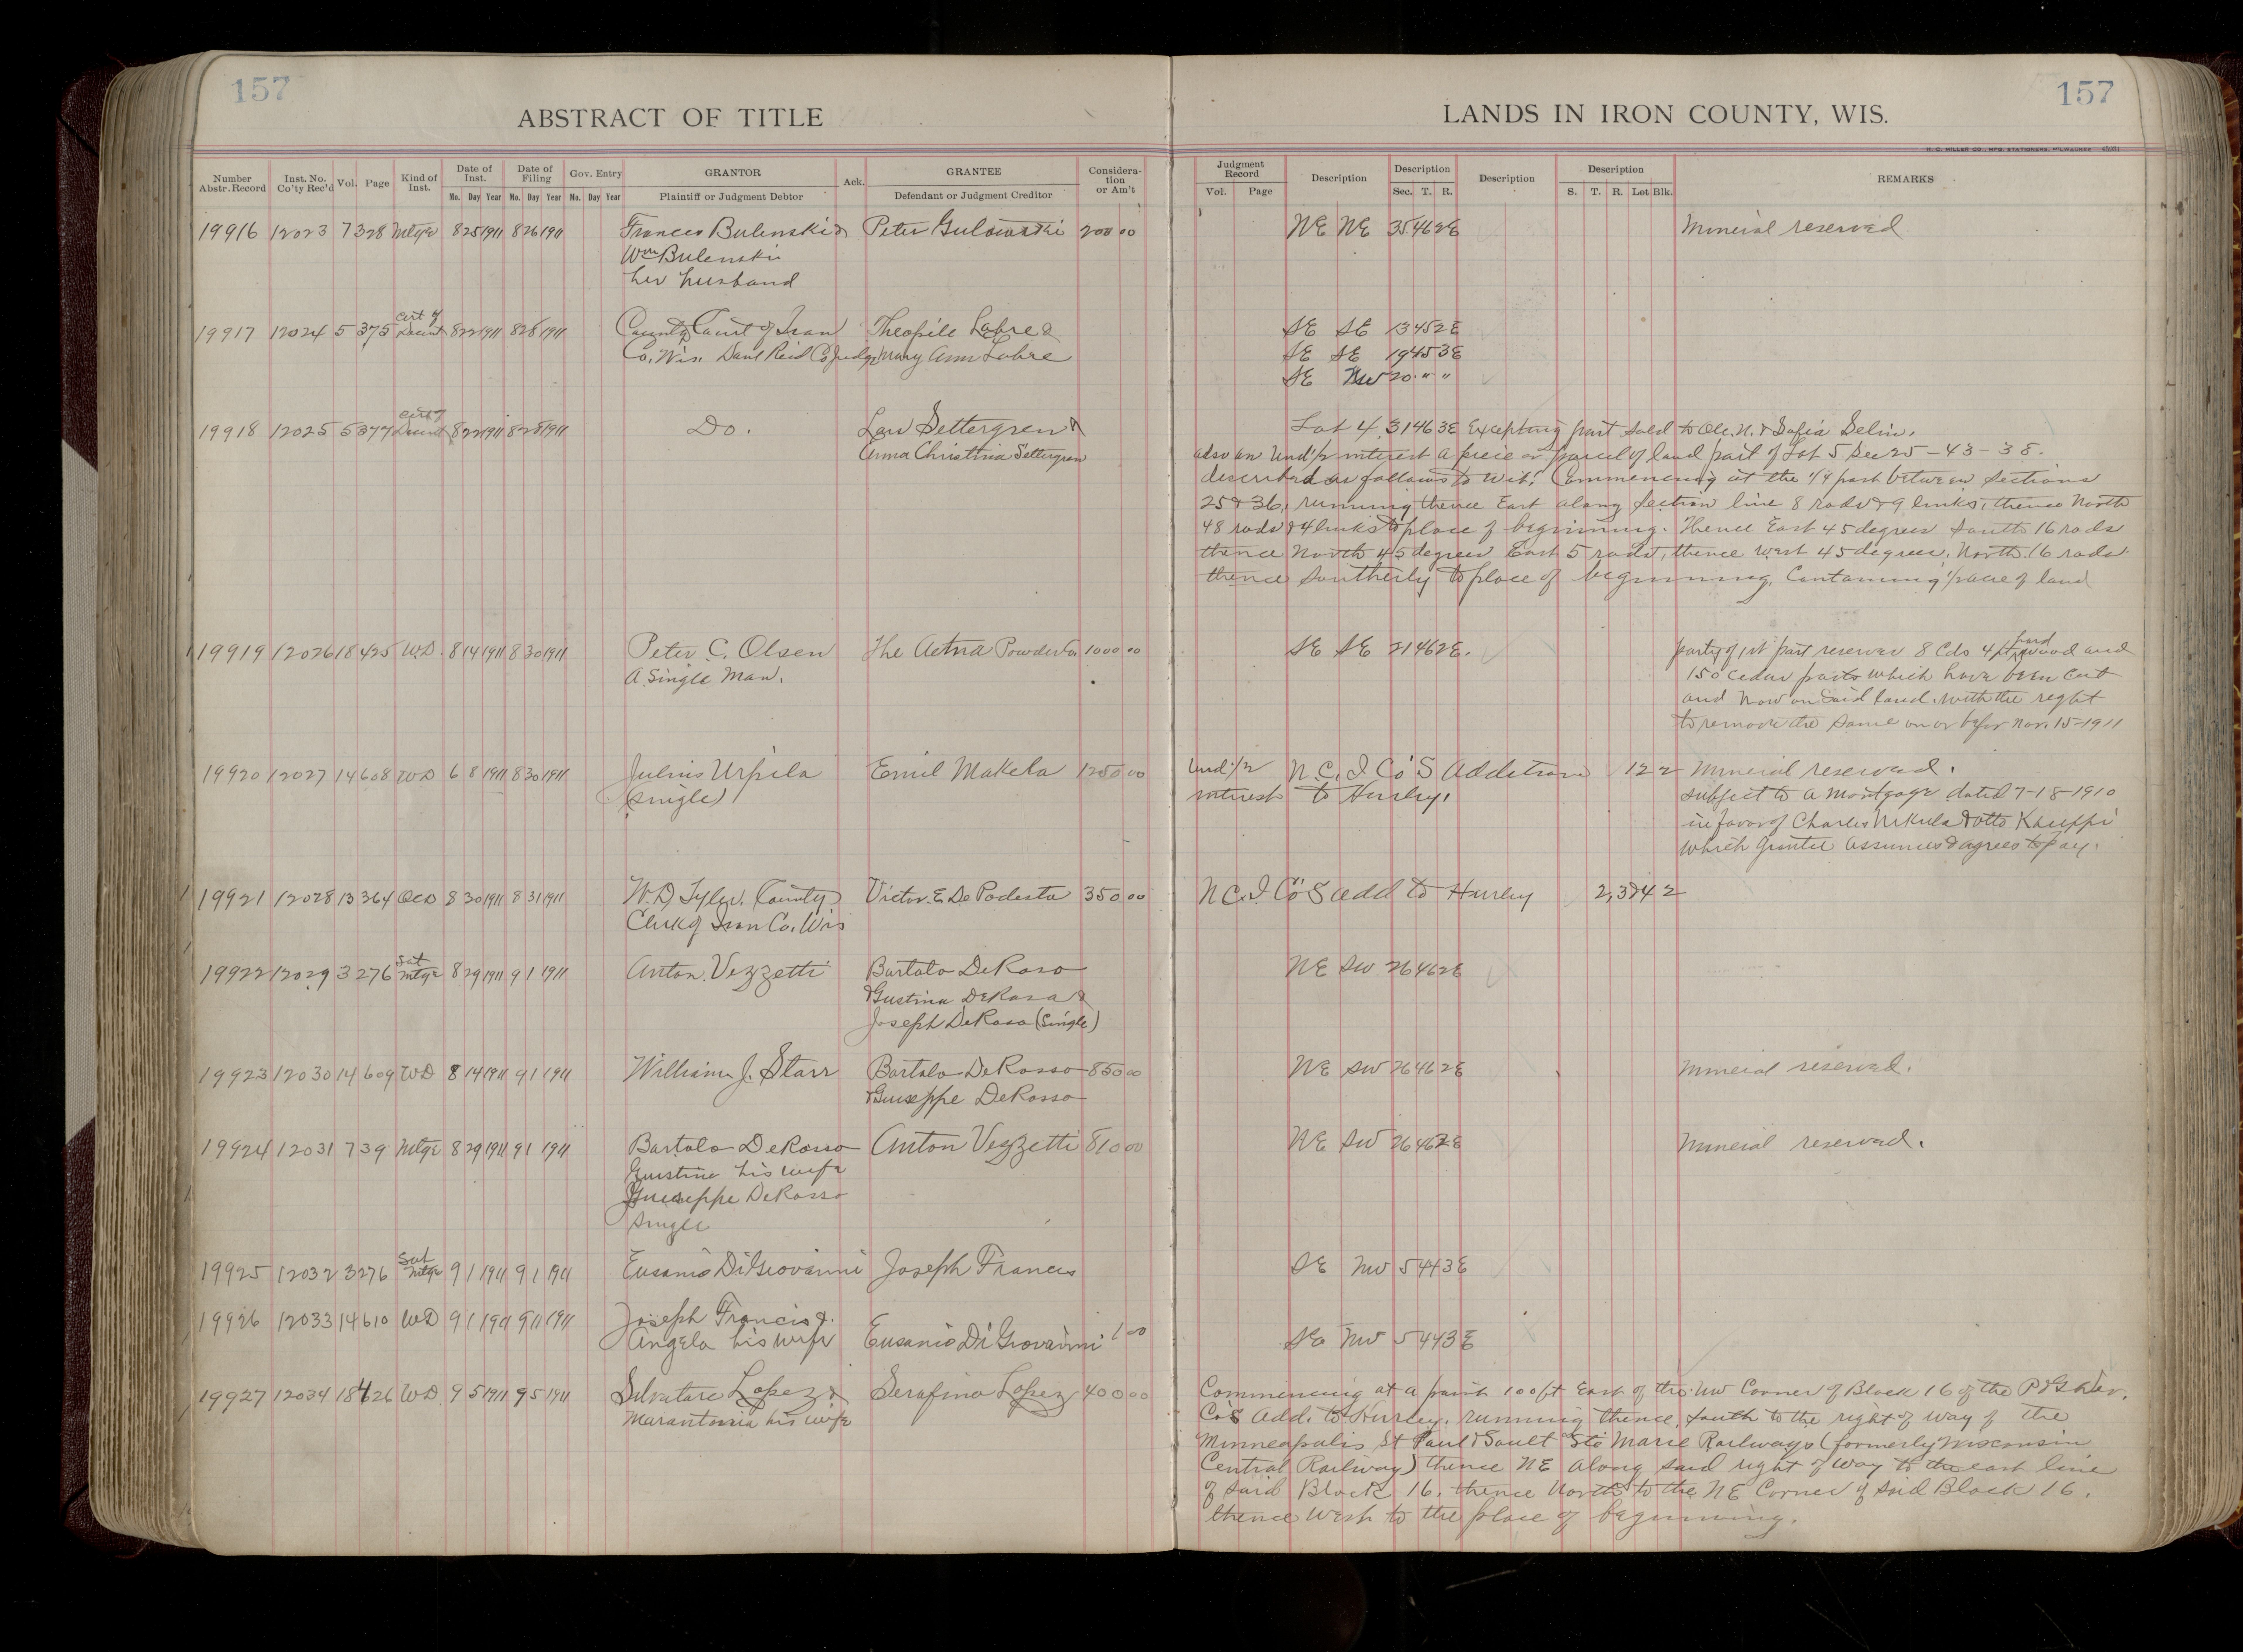 157
157
ABSTRACT OF TITLE
LANDS IN IRON COUNTY, WIS.
H. C. MILLER CO., MFG. STATIONERS, MILWAUKEE
Number Abstr. Record Inst. No. Co'ty Rec'd Vol. Page Kind of Inst. Date of Inst. Mo. Day Year Date of Filing Mo. Day Year Gov. Entry Mo. Day Year GRANTOR Plaintiff or Judgment Debtor Ack. GRANTEE Defendant or Judgment Creditor Consideration or Am't
Judgment Record Vol. Page Description Description Sec. T. R. Description Description S. T. R. Lot Blk. REMARKS
19916 12023 7 328 Mtge 8 25 1911 8 26 1911 Frances Bulinski & Peter 200 00 NE NE 35 46 2E Mineral reserved
Wm Bulenski
her husband
19917 12024 5 375 Cert of Descent 8 22 1911 8 28 1911 County Court of Iron Theopile Labre & SE SE 13 45 2E
Co. Wis. Danl Reid Co Judge Mary Ann Labre SE SE 19 45 3E
SE NW 20 " "
19918 12025 5 377 Cert of Descent 8 22 1911 8 28 1911 Do. Lars Settergren & Lot 4, 31 46 3E Excepting part sold to Ole. N. & Sofia Selin.
Anna Christina Settergren also an Und 1/2 interest a peice or parcel of land part of Lot 5 Sec 25 - 43 - 3E.
described as follows to wit: Commencing at the 1/4 post between Sections
25 & 36, running thence East along Section line 8 rods & 9 links, thence North
48 rods & 4 links to place of beginning. Thence East 45 degrees South 16 rods
thence North 45 degrees East 5 rods, thence west 45 degrees, North 16 rods
thence Southerly to place of beginning, Containing 1/2 acre of land
19919 12026 18 425 W.D. 8 14 1911 8 30 1911 Peter C. Olsen The Aetna Powder Co 1000 00 SE SE 21 46 2E. party of 1st part reserves 8 Cds 4 ft hard wood and
A Single Man. 150 cedar posts which have been cut
and now on said land, with the right
to remove the same on or before Nov. 15-1911
19920 12027 14 608 WD 6 8 1911 8 30 1911 Julius Urpila Emil Makela 1250 00 Und 1/2 N. C. I Co's Addition 12 2 Mineral reserved.
(single) interest to Hurley. subject to a Mortgage dated 7-18-1910
in favor of Charles & Otto
which Grantee assumes & agrees to pay.
19921 12028 13 364 QCD 8 30 1911 8 31 1911 W. D. Tyler, County Victor. E. De Podesta 350 00 N C. I Co's add to Hurley 2, 3 & 4 2
Clerk of Iron Co. Wis
19922 12029 3 276 Sat Mtge 8 29 1911 9 1 1911 Anton Vezzetti Bartolo DeRoso NE SW 26 46 2E
& Gustina DeRosa &
Joseph DeRoso (Single)
19923 12030 14 609 WD 8 14 1911 9 1 1911 William J. Starr Bartolo DeRosso 850 00 NE SW 26 46 2E Mineral reserved.
& Guiseppe DeRosso
19924 12031 7 39 Mtge 8 29 1911 9 1 1911 Bartolo DeRosso Anton Vezzetti 810 00 NE SW 26 46 2E Mineral reserved.
Guistina his wife
Guiseppe DeRosso
single
19925 12032 3 276 Sat Mtge 9 1 1911 9 1 1911 Eusanio DiGiovanni Joseph Francis SE NW 5 44 3E
19926 12033 14 610 WD 9 1 1911 9 1 1911 Joseph Francis &
Angela his wife Eusanio Di Giovanni 1 00 SE NW 5 44 3E
19927 12034 18 426 WD 9 5 1911 9 5 1911 Salvatare Lopez & Serafino Lopez 400 00 Commencing at a point 100 ft East of the NW Corner of Block 16 of the P & G Dev.
Marantonia his wife Co's Add. to Hurley, running thence South to the right of way of the
Minneapolis St Paul & Sault Ste Marie Railway (formerly Wisconsin
Central Railway) thence NE along said right of way to the east line
of said Block 16, thence North to the NE Corner of said Block 16,
thence west to the place of beginning.